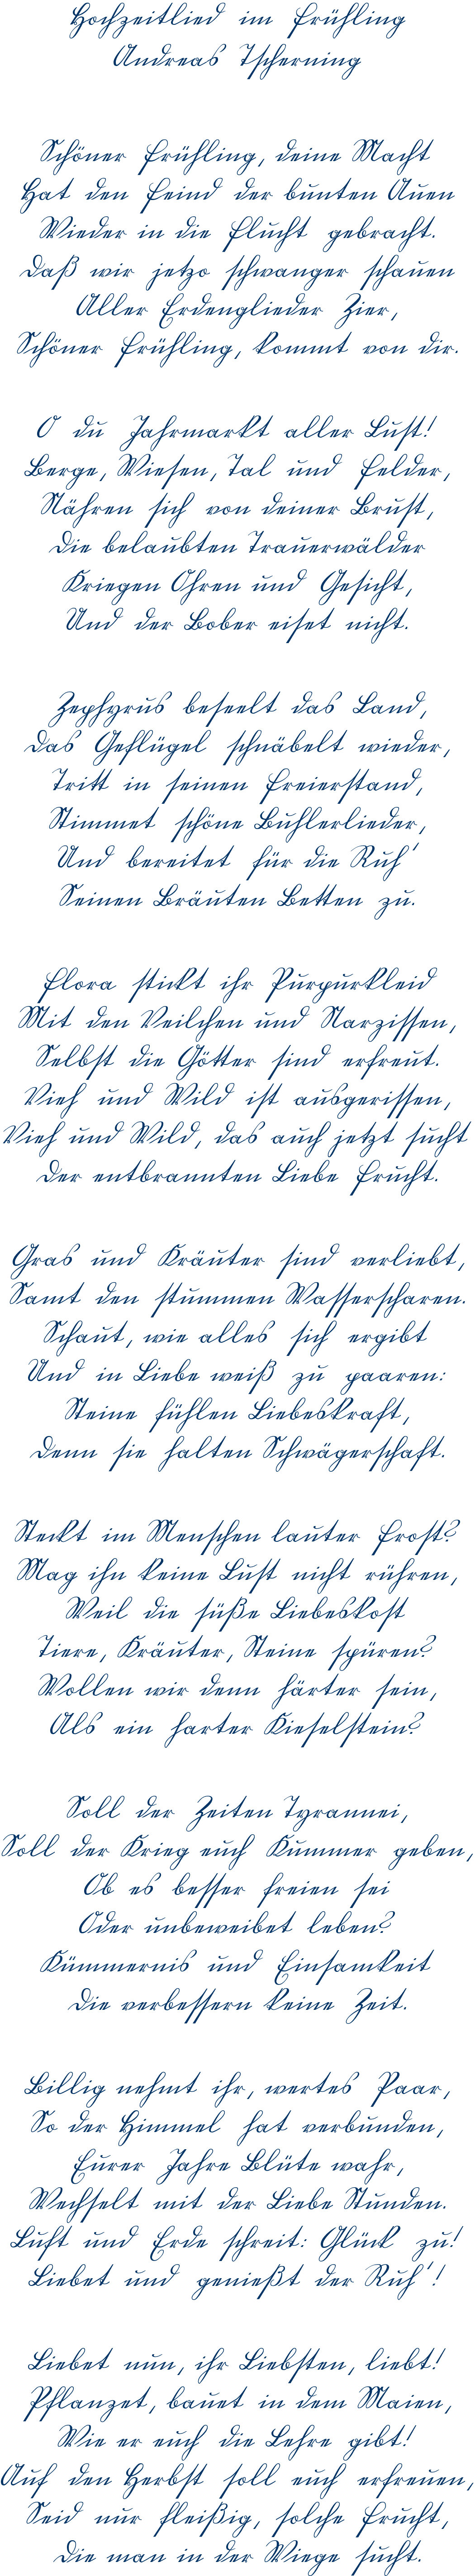 Hochzeitlied im Frühling
Andreas Tscherning
Schöner Frühling, deine Macht
Hat den Feind der bunten Auen
Wieder in die Flucht gebracht.
Daß wir jetzo schwanger schauen
Aller Erdenglieder Zier,
Schöner Frühling, kommt von dir.
O du Jahrmarkt aller Lust!
Berge, Wiesen, Tal und Felder,
Nähren sich von deiner Brust,
Die belaubten Trauerwälder
Kriegen Ohren und Gesicht,
Und der Bober eiset nicht.
Zephyrus beseelt das Land,
Das Geflügel schnäbelt wieder,
Tritt in seinen Freierstand,
Stimmet schöne Buhlerlieder,
Und bereitet für die Ruh'
Seinen Bräuten Betten zu.
Flora stickt ihr Purpurkleid
Mit den Veilchen und Narzissen,
Selbst die Götter sind erfreut.
Vieh und Wild ist ausgerissen,
Vieh und Wild, das auch jetzt sucht
Der entbrannten Liebe Frucht.
Gras und Kräuter sind verliebt,
Samt den stummen Wasserscharen.
Schaut, wie alles sich ergibt
Und in Liebe weiß zu paaren:
Steine fühlen Liebeskraft,
Denn sie halten Schwägerschaft.
Steckt im Menschen lauter Frost?
Mag ihn keine Lust nicht rühren,
Weil die süße Liebeskost
Tiere, Kräuter, Steine spüren?
Wollen wir denn härter sein,
Als ein harter Kieselstein?
Soll der Zeiten Tyrannei,
Soll der Krieg euch Kummer geben,
Ob es besser freien sei
Oder unbeweibet leben?
Kümmernis und Einsamkeit
Die verbessern keine Zeit.
Billig nehmt ihr, wertes Paar,
So der Himmel hat verbunden,
Eurer Jahre Blüte wahr,
Wechselt mit der Liebe Stunden.
Luft und Erde schreit: Glück zu!
Liebet und genießt der Ruh'!
Liebet nun, ihr Liebsten, liebt!
Pflanzet, bauet in dem Maien,
Wie er euch die Lehre gibt!
Auf den Herbst soll euch erfreuen,
Seid nur fleißig, solche Frucht,
Die man in der Wiege sucht.